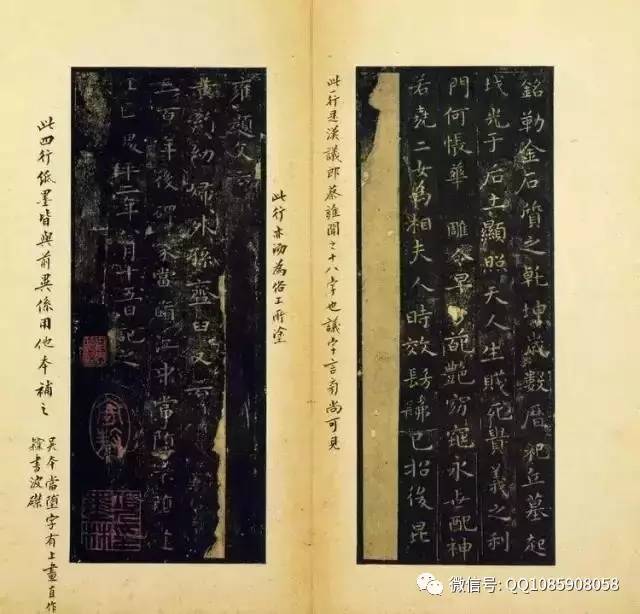 銘勒金石質之乾坤歲數曆祀丘墓起
墳光于后土顯照天人生賤死貴義之利
門何悵華雕零早葩艷窈窕永世配神
若堯二女為相夫人時效髣髴已招後昆
此一行是漢議郎蔡雍聞之十八字也議字言旁尚可見
此行亦泐為俗工所塗
雍題文云
黃絹幼婦外孫齏臼又云
三百年後碑冢當墮江中當墮
王叵二年八月十五日記之
此四行紙墨皆與前異係用他本補之
吳本當墮字有土畫直作
書波磔
微信号: QQ1085908058